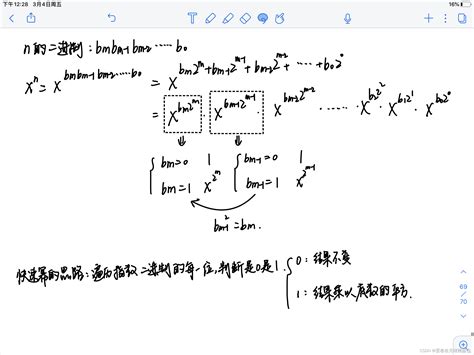 下午12:28 3月4日周五 16%
n的二进制：bmbm-1bm-2……b0
x^n = x^bmbm-1bm-2……b0 = x^bm2^m+bm-12^m-1+bm-22^m-2+……+b02^0
= x^bm2^m · x^bm-12^m-1 · x^bm-22^m-2 …… x^b22^2 · x^b12^1 · x^b02^0
bm=0 1 bm-1=0 1
bm=1 x^2^m bm-1=1 x^2^m-1
bm-1^2=bm.
快速幂的思路：遍历指数二进制的每一位，判断是0是1.
0：结果不变
1：结果乘以底数的平方.
69
70